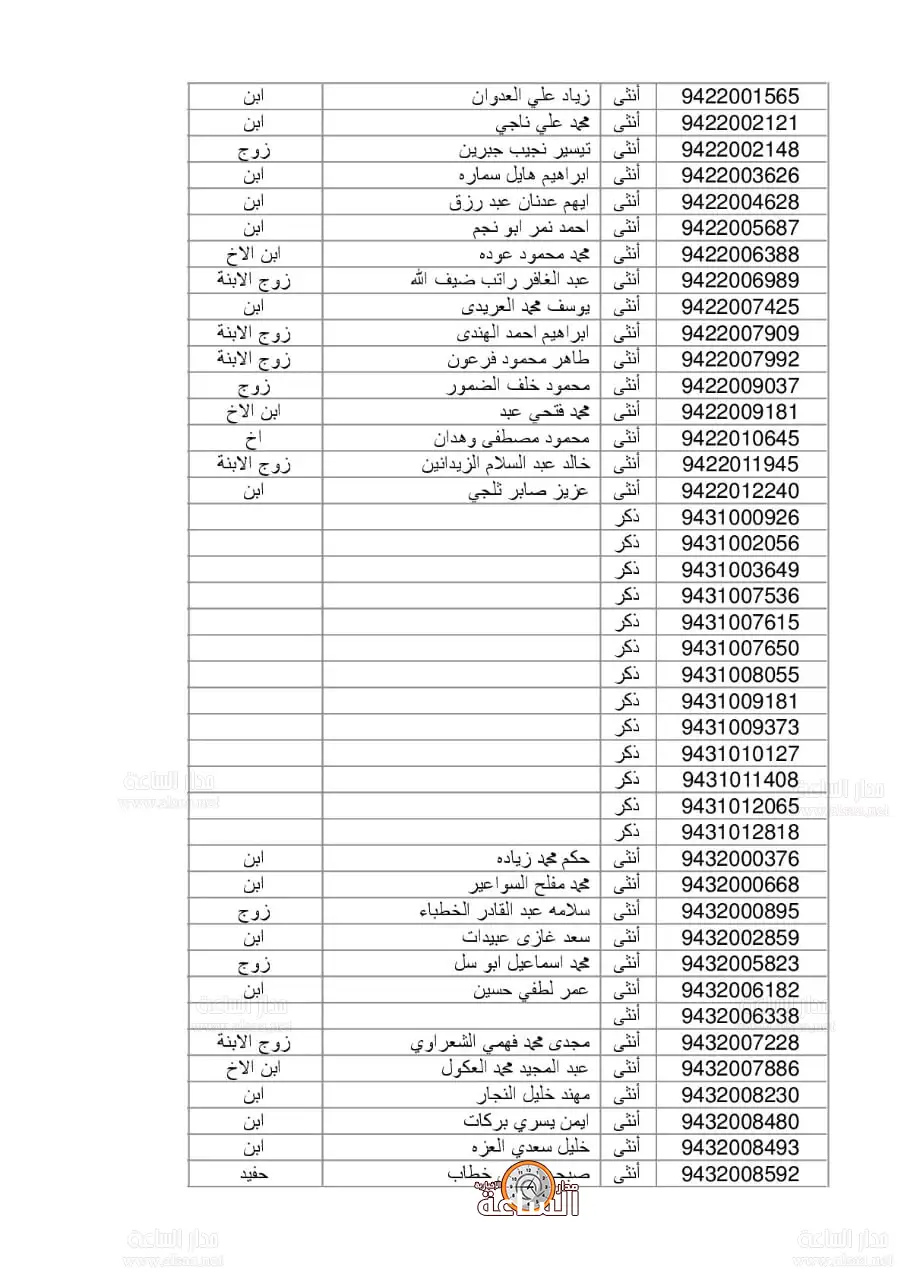 9422001565 أنثى زياد علي العدوان ابن
9422002121 أنثى محمد علي ناجي ابن
9422002148 أنثى تيسير نجيب جبرين زوج
9422003626 أنثى ابراهيم هايل سماره ابن
9422004628 أنثى ايهم عدنان عبد رزق ابن
9422005687 أنثى احمد نمر ابو نجم ابن
9422006388 أنثى محمد محمود عوده ابن الاخ
9422006989 أنثى عبد الغافر راتب ضيف الله زوج الابنة
9422007425 أنثى يوسف محمد العريدى ابن
9422007909 أنثى ابراهيم احمد الهندى زوج الابنة
9422007992 أنثى طاهر محمود فرعون زوج الابنة
9422009037 أنثى محمود خلف الضمور زوج
9422009181 أنثى محمد فتحي عبد ابن الاخ
9422010645 أنثى محمود مصطفى وهدان اخ
9422011945 أنثى خالد عبد السلام الزيدانين زوج الابنة
9422012240 أنثى عزيز صابر ثلجي ابن
9431000926 ذكر
9431002056 ذكر
9431003649 ذكر
9431007536 ذكر
9431007615 ذكر
9431007650 ذكر
9431008055 ذكر
9431009181 ذكر
9431009373 ذكر
9431010127 ذكر
9431011408 ذكر
9431012065 ذكر
9431012818 ذكر
9432000376 أنثى حكم محمد زياده ابن
9432000668 أنثى محمد مفلح السواعير ابن
9432000895 أنثى سلامه عبد القادر الخطباء زوج
9432002859 أنثى سعد غازى عبيدات ابن
9432005823 أنثى محمد اسماعيل ابو سل زوج
9432006182 أنثى عمر لطفي حسين ابن
9432006338 أنثى
9432007228 أنثى مجدى محمد فهمي الشعراوي زوج الابنة
9432007886 أنثى عبد المجيد محمد العكول ابن الاخ
9432008230 أنثى مهند خليل النجار ابن
9432008480 أنثى ايمن يسري بركات ابن
9432008493 أنثى خليل سعدي العزه ابن
9432008592 أنثى خطاب حفيد
مدار الساعة الإخبارية
مدار الساعة
www.alsaa.net
مدار الساعة
www.alsaa.net
مدار الساعة
مدار الساعة
مدار الساعة
www.alsaa.net
مدار الساعة
www.alsaa.net